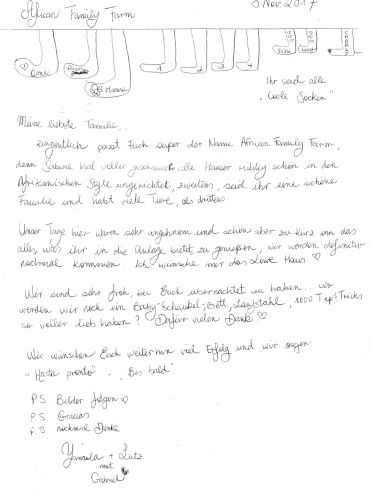 African Family Farm
Nov. 2017
Omi
Mama
1 2 3 4
Ihr seid alle
"Coole Socken"
Meine liebste Familie,
eingentlich passt Euch super der Name African Family Farm,
denn Sabine hat voller geschmack alle Häuser richtig schön in den
Afrikanischen Style eingerichtet, zweitens, seid ihr eine schöne
Familie und habt viele Tiere, als drittens.
Unser Tage hier waren sehr angenehm und schön aber zu kurz um das
alles, was ihr in die Anlage bietet zu geniessen, wir werden definitiv
nochmal kommen. Ich wünsche mir das Löwe Haus ♡
Wir sind sehr froh, bei Euch übernachtet zu haben... wo
würden wir noch ein Baby-Schaukel, Bett, 1000 Tip's Tricks
so voller lieb haben? Dafür vielen Danke ♡
Wir wünschen Euch weiterhin viel Erfolg und wir sagen:
"Hasta pronto" - "Bis bald"
P.S. Bilder folgen ♡
P.S. Gracias
P.S. nochmal Danke
+ Lutz
mit
Gabriel